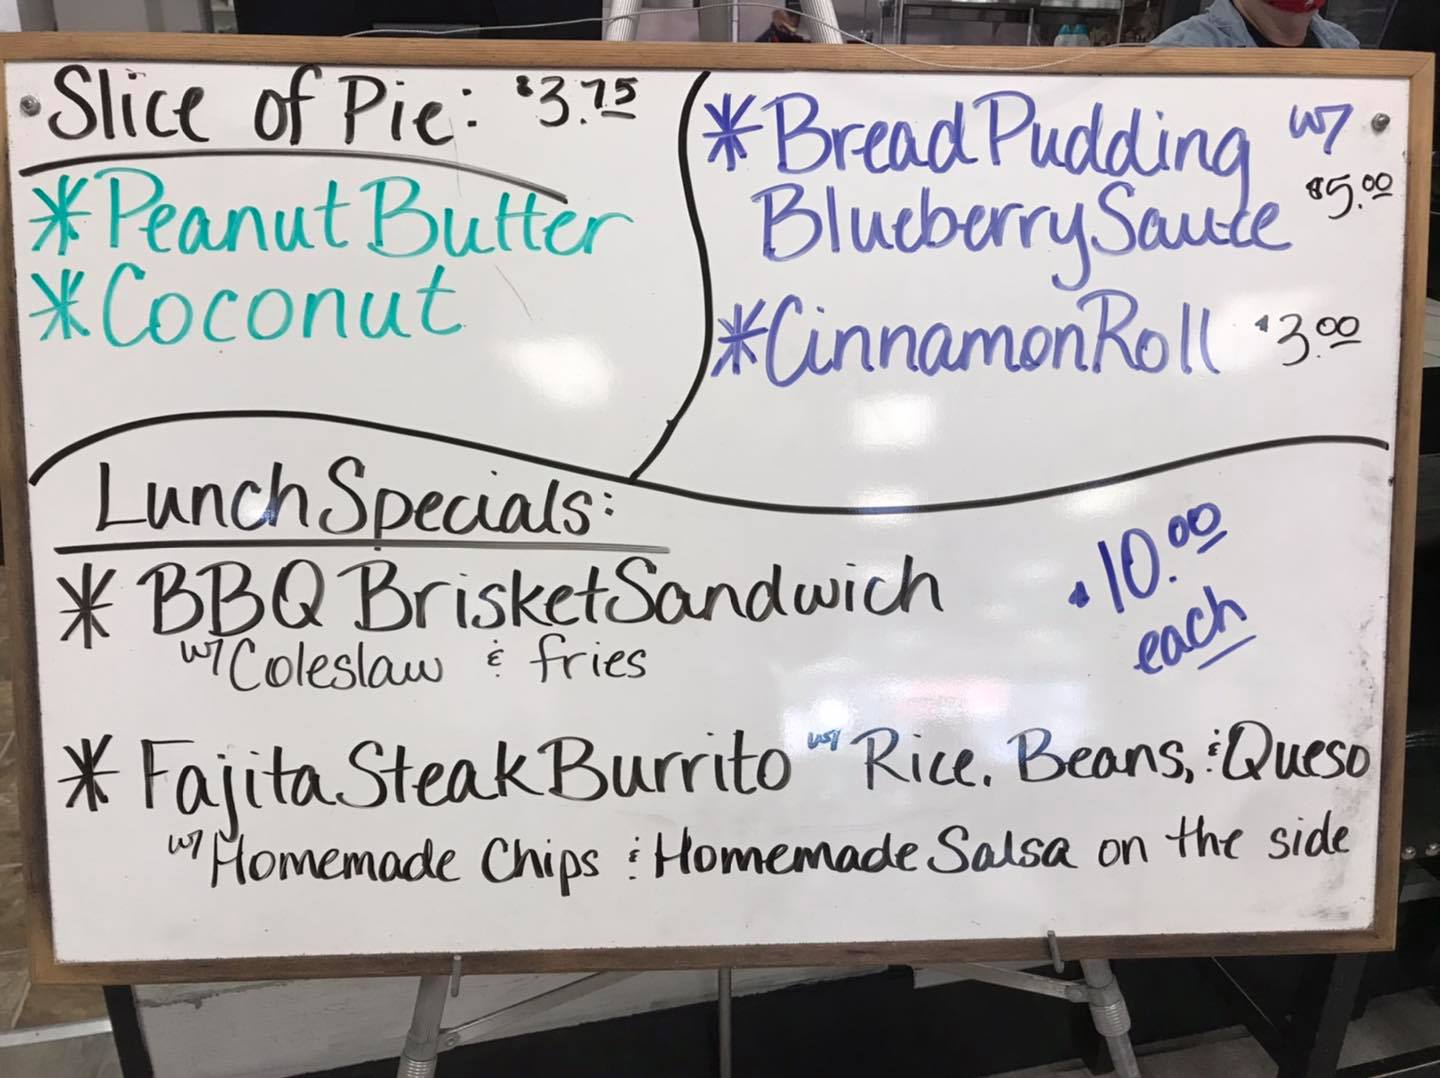 Slice of Pie: $3.75
*Peanut Butter
*Coconut
*Bread Pudding w/
Blueberry Sauce $5.00
*Cinnamon Roll $3.00
Lunch Specials:
* BBQ Brisket Sandwich
w/ Coleslaw & fries
$10.00
each
* Fajita Steak Burrito w/ Rice, Beans, & Queso
w/ Homemade Chips & Homemade Salsa on the side